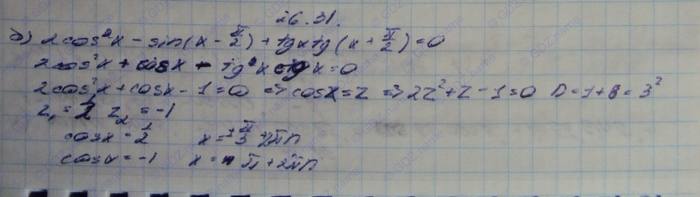 26.31.
б) 2cos²x - sin(x - π/2) + tgxtg(x + π/2) = 0
2cos²x + cosx - tgx ctgx = 0
2cos²x + cosx - 1 = 0 => cosx = z => 2z² + z - 1 = 0 D = 1 + 8 = 3²
z₁ = 1/2 z₂ = -1
cosx = 1/2 x = ±π/3 + 2πn
cosx = -1 x = π + 2πn